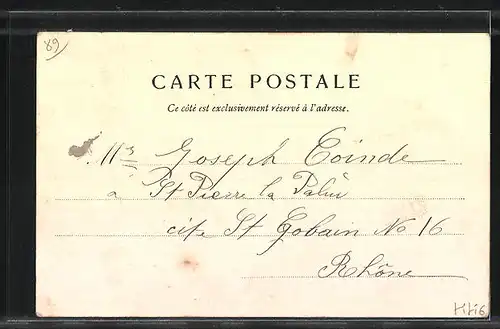 89
CARTE POSTALE
Ce côté est exclusivement réservé à l'adresse.
Mr Joseph Coinde
à St Pierre la Palu
cite St Gobain No 16
Rhône